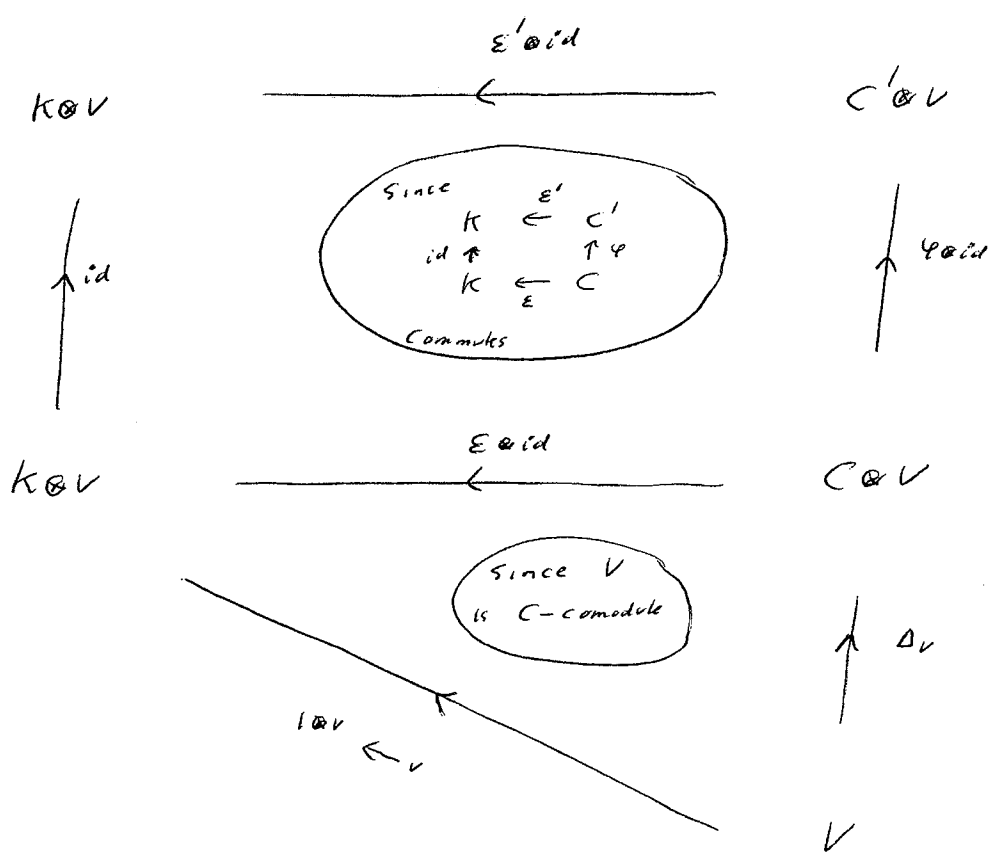 ε'⊗id
K⊗V C'⊗V
Since
K ←ε' C'
id ↑ ↑ φ
K ←ε C
Commutes
id φ⊗id
ε⊗id
K⊗V C⊗V
Since V
is C-comodule
Δ_V
1⊗v ← v
V